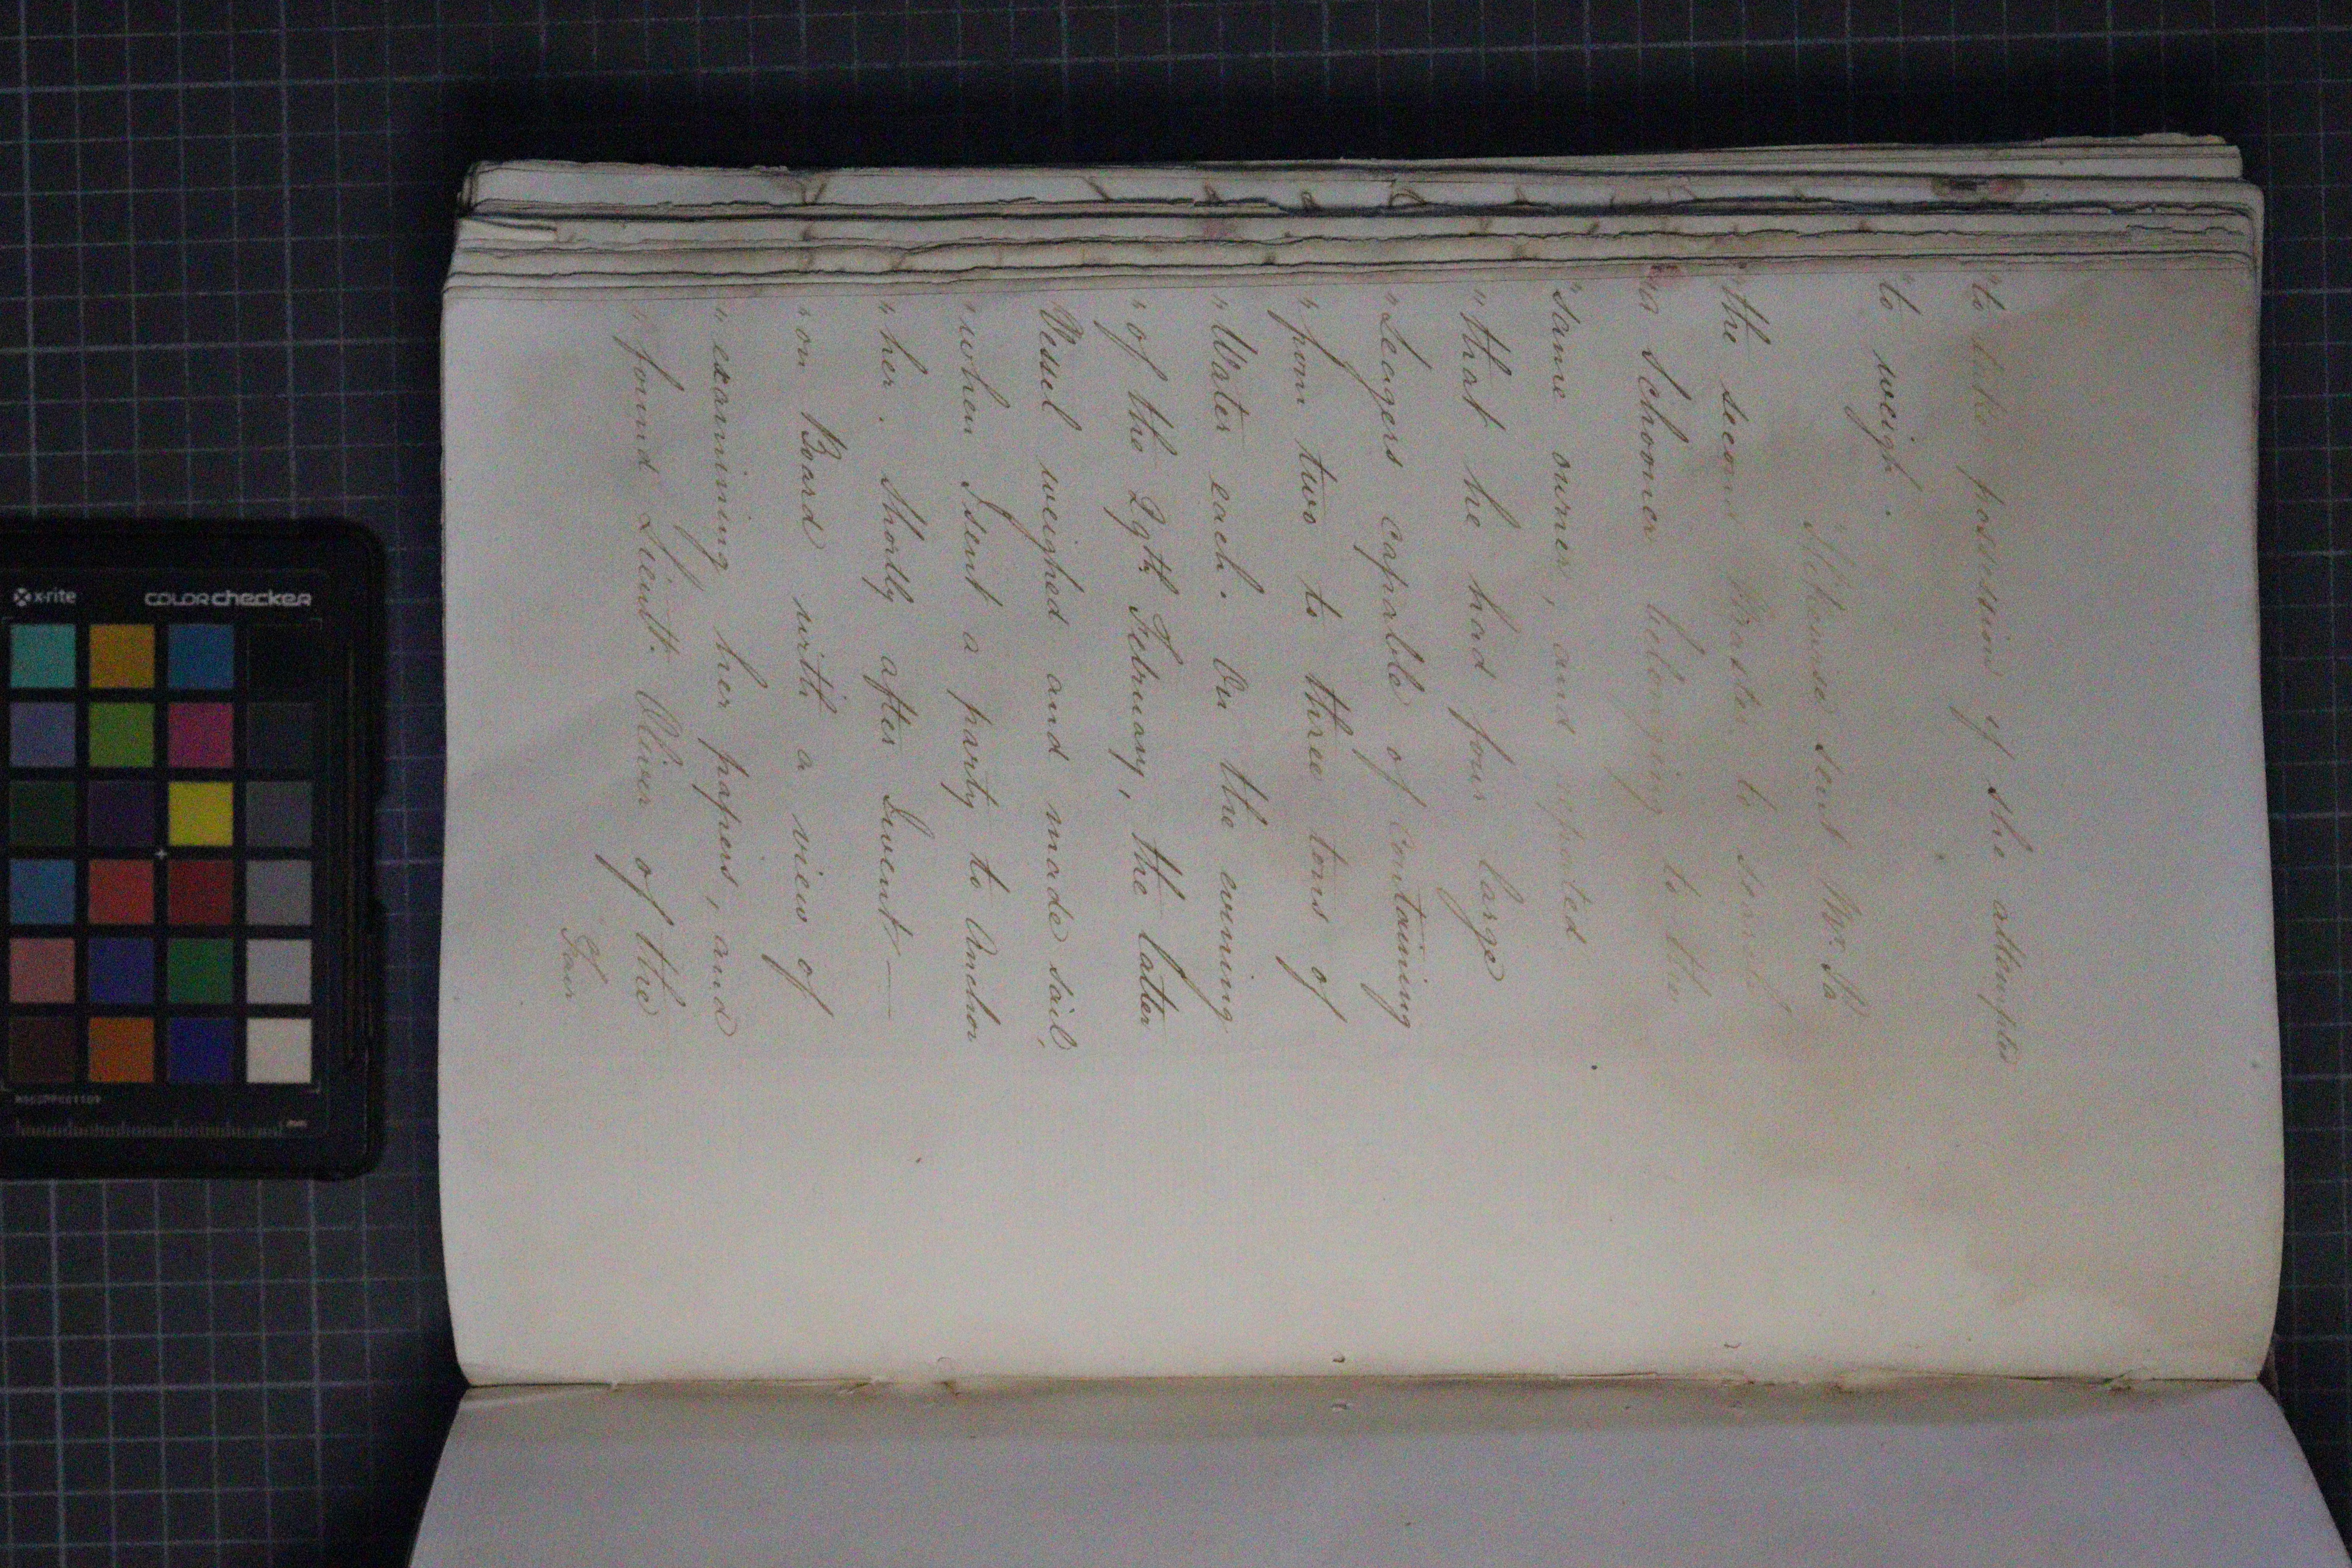 "to take possession if she attempted
"to weigh.
"I likewise sent Mr. Pa
"the second Master to search
"a Schooner belonging to the
"same owner, and reported
"that he had four large
"Leagers capable of containing
"from two to three tons of
"Water each. On the evening
"of the 29th February, the latter
Vessel weighed and made sail,
"when I sent a party to Anchor
"her. Shortly after I went —
"on Board with a view of
"examining her papers, and
"found Lieutt. Oliver of the
Fair
x-rite COLORchecker